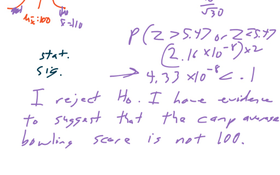 √30
P(Z > 5.47 or Z ≤ -5.47)
(2.16 × 10⁻⁸) × 2
stat.
sig.
→ 4.33 × 10⁻⁸ < .1
I reject Ho. I have evidence
to suggest that the camp average
bowling score is not 100.